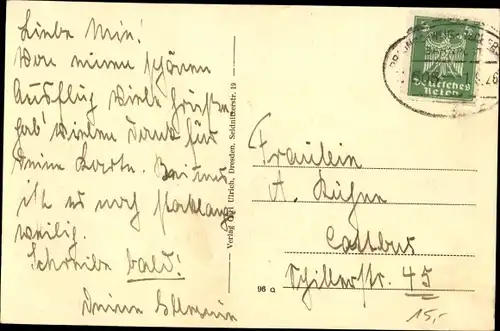 Liebe Mim!
Von einem schönen
Ausflug viele Grüße.
Hab' vielen Dank für
Deine Karte. Bei uns
ist es noch stocklang-
weilig.
Schreibe bald!
Deine
Verlag Carl Ulrich, Dresden, Seidnitzerstr. 19
96 a
Deutsches
Reich
Fräulein
A. Kühne
Cottbus
Schillerstr. 45
15,-